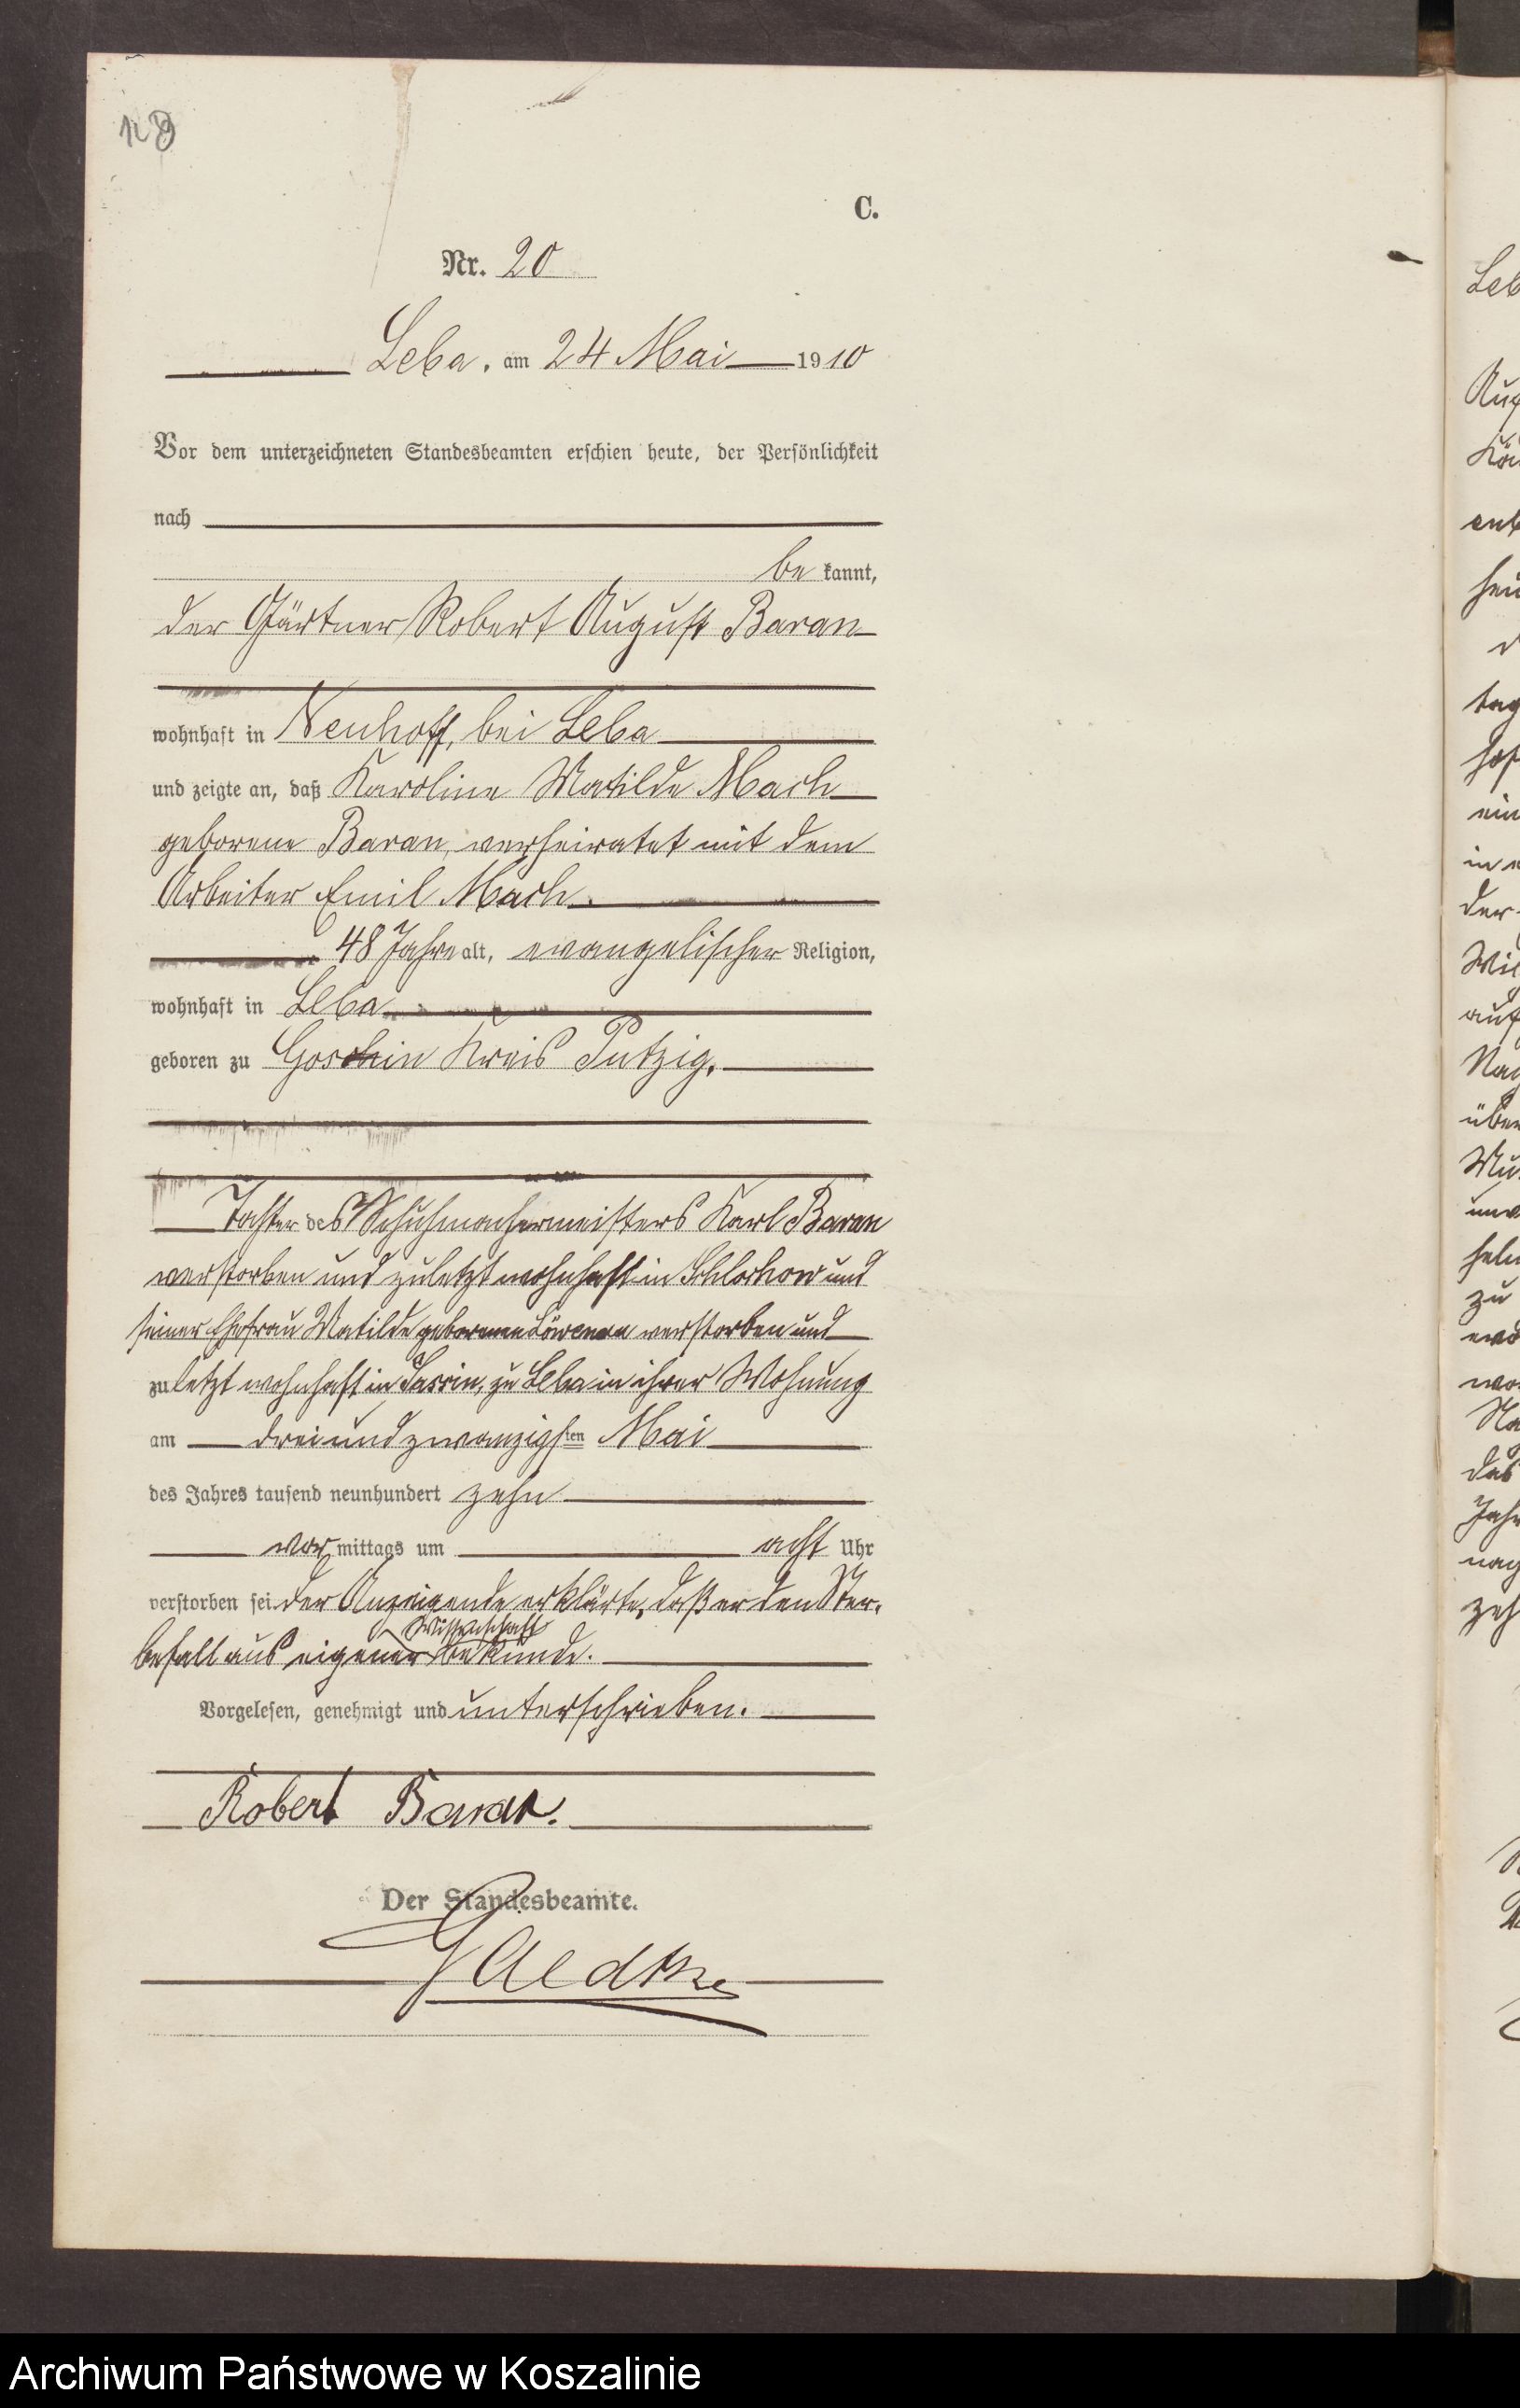 C.
Nr. 20
Leba, am 24 Mai 1910
Vor dem unterzeichneten Standesbeamten erschien heute, der Persönlichkeit
nach
be kannt,
der Gärtner Robert August Baran
wohnhaft in Neuhoff, bei Leba
und zeigte an, daß Karoline Matilde Mach
geborene Baran, verheiratet mit dem
Arbeiter Emil Mach.
48 Jahre alt, evangelischer Religion,
wohnhaft in Leba
geboren zu Goschin Kreis Putzig.
Tochter des Schuhmachermeisters Karl Baran
verstorben und zuletzt wohnhaft in Schlochow und
seiner Ehefrau Matilde geborene verstorben und
zuletzt wohnhaft in Sassin, zu Leba in ihrer Wohnung
am dreiundzwanzigsten Mai
des Jahres tausend neunhundert zehn
vor mittags um acht Uhr
verstorben sei. der Anzeigende erklärte, daß er den Ster-
Wissenschaft
befall aus eigener bekunde.
Vorgelesen, genehmigt und unterschrieben.
Robert Baran.
Der Standesbeamte.
Gaedtke
Leb
Aug
heu
tag
hof
ein
in
der
auf
über
zu
das
Jahr
zeh
Archiwum Państwowe w Koszalinie